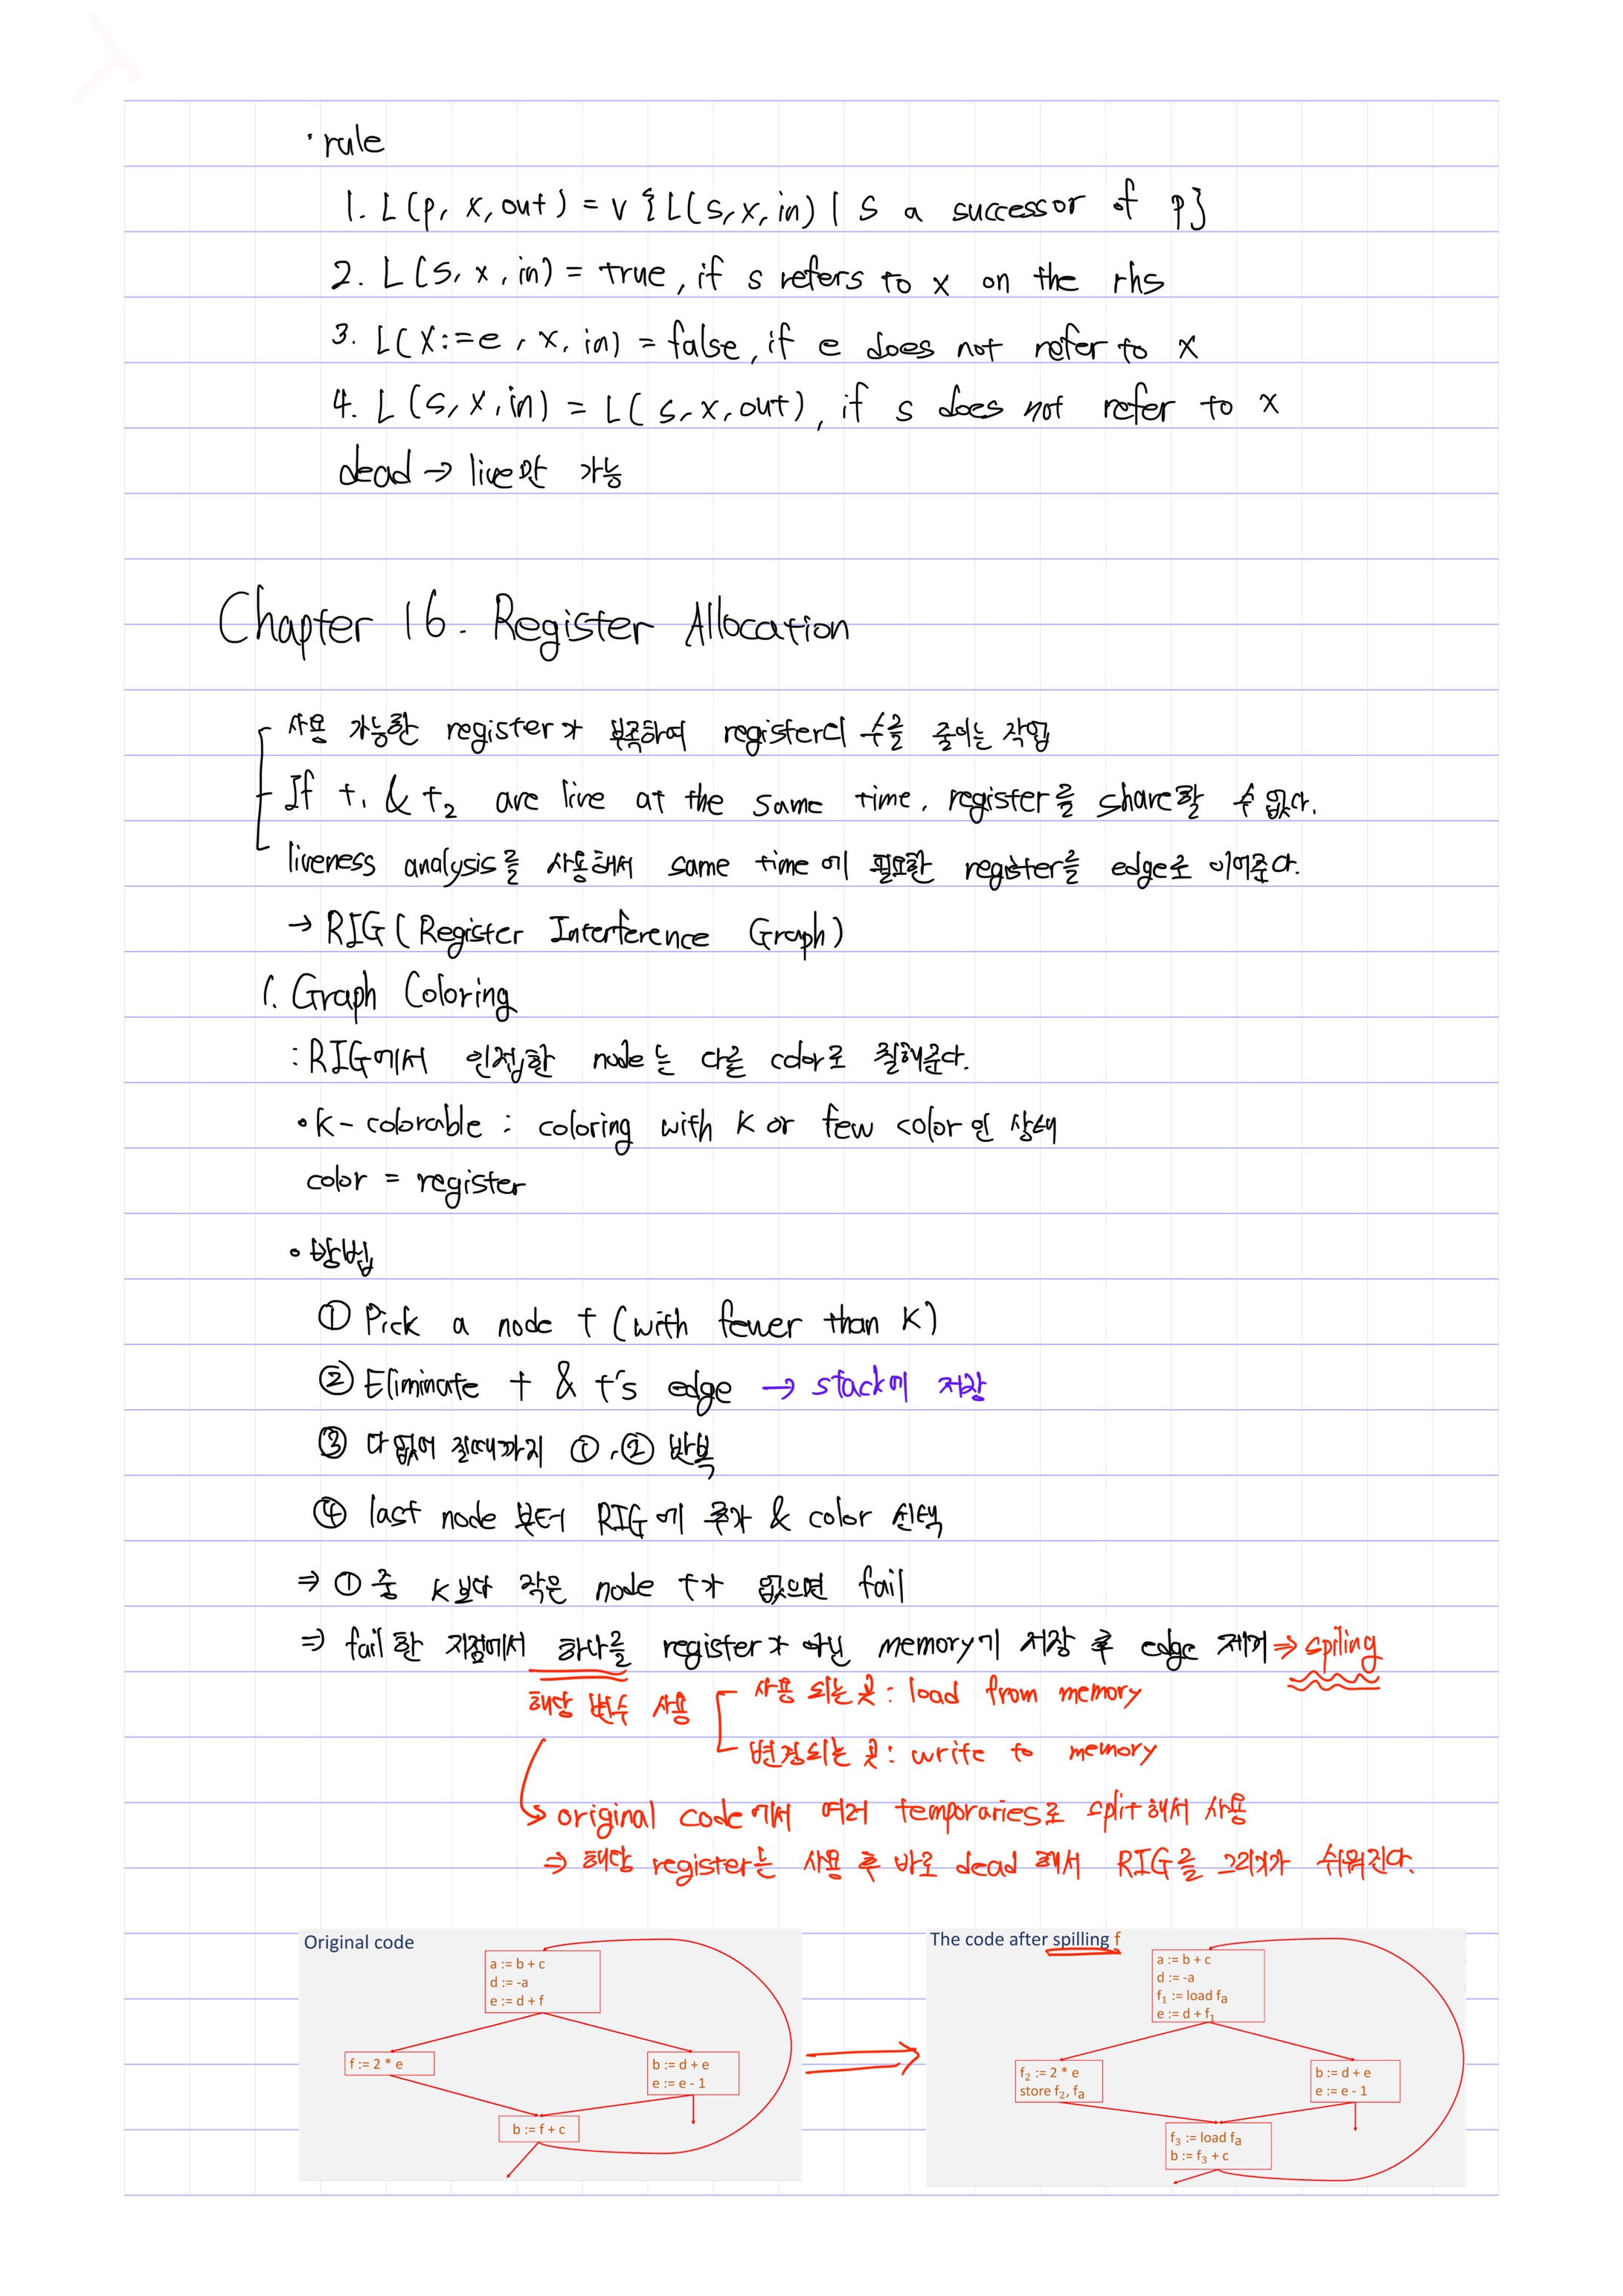 · rule
1. L(p, x, out) = ∨ {L(s, x, in) | s a successor of p}
2. L(s, x, in) = true, if s refers to x on the rhs
3. L(x:=e, x, in) = false, if e does not refer to x
4. L(s, x, in) = L(s, x, out), if s does not refer to x
dead → live만 가능
Chapter 16. Register Allocation
사용 가능한 register가 부족하여 register의 수를 줄이는 작업
If t₁ & t₂ are live at the same time, register를 share할 수 없다.
liveness analysis를 사용해서 same time에 필요한 register를 edge로 이어준다.
→ RIG (Register Interference Graph)
1. Graph Coloring
: RIG에서 인접한 node는 다른 color로 칠해준다.
• k-colorable : coloring with k or few color인 상태
color = register
• 방법
① Pick a node t (with fewer than k)
② Eliminate t & t's edge → stack에 저장
③ 다 없어 질때까지 ①,② 반복
④ last node 부터 RIG에 추가 & color 선택
⇒ ① 중 k보다 작은 node t가 없으면 fail
⇒ fail한 지점에서 하나를 register가 아닌 memory기 저장 후 edge 제거 ⇒ spiling
해당 변수 사용
사용 되는 곳 : load from memory
변경되는 곳 : write to memory
→ original code에서 여러 temporaries로 split해서 사용
⇒ 해당 register는 사용 후 바로 dead 해서 RIG를 그리기가 쉬워진다.
Original code
a := b + c
d := -a
e := d + f
f := 2 * e
b := d + e
e := e - 1
b := f + c
The code after spilling f
a := b + c
d := -a
f₁ := load fa
e := d + f₁
f₂ := 2 * e
store f₂, fa
b := d + e
e := e - 1
f₃ := load fa
b := f₃ + c